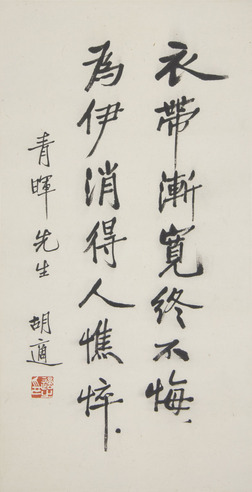 衣帶漸寬終不悔.
為伊消得人憔悴.
青暉先生
胡適